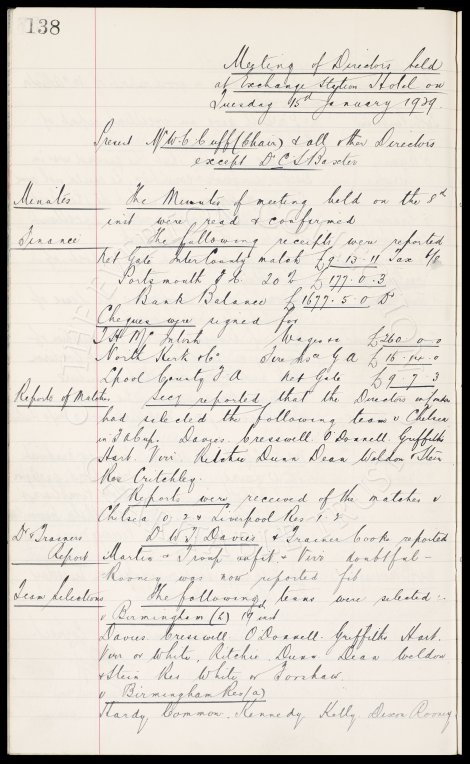 138
Meeting of Directors held
at Exchange Station Hotel on
Tuesday 15th January 1929.
Present Mr W. C. Cuff (Chair) & all other Directors
except Dr C. S. Baxter
Minutes The Minutes of meeting held on the 8th
inst were read & confirmed
Finance The following receipts were reported
Net Gate InterCounty match £9. 13. 11 Tax
Portsmouth F. C. 20% £177. 0. 3
Bank Balance £1677. 5. 0
Cheques were signed for
T. H. McIntosh Wages £260 0 0
North Kerk & Co G A £16. 14. 0
Lpool County F A Net Gate £9. 7. 3
Reports of Matches. Secy reported that the Directors in London
had selected the following team v Chelsea
in F A Cup. Davies. Cresswell. O'Donnell. Griffiths
Hart. Virr. Ritchie Dunn Dean Weldon & Stein
Res Critchley.
Reports were received of the matches v
Chelsea 0. 2 & Liverpool Res 1. 2
Dr & Trainers Dr W. T. Davies & Trainer Cooke reported
Report Martin & Troup unfit & Virr doubtful -
Rooney was now reported fit
Team Selections The following teams were selected :-
v Birmingham (h) 19th inst
Davies Cresswell O'Donnell. Griffiths Hart.
Virr or White, Ritchie. Dunn Dean Weldon
& Stein Res White or Forshaw.
v Birmingham Res (a)
Hardy Common. Kennedy Kelly Dixon Rooney.